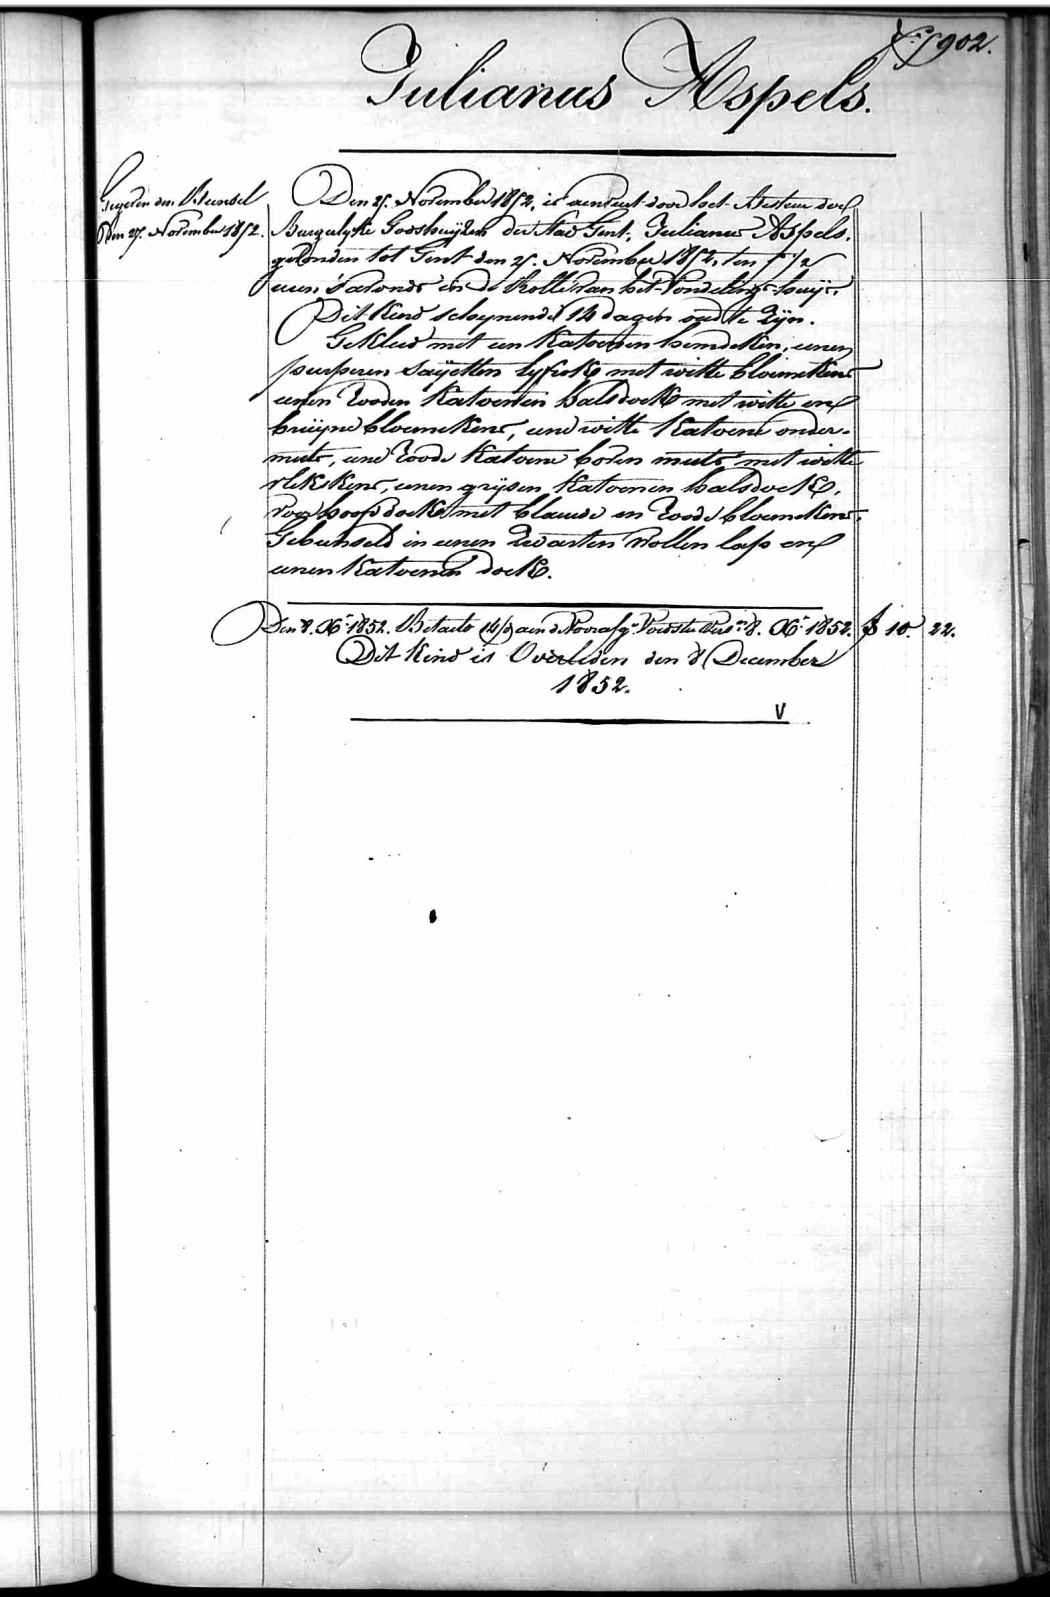 902.
Julianus Aspels.
Gegeven den
den 27. November 1852.
Den 25. November 1852, is aenveert door het Bestuer der
Burgerlyke Godshuijzen der Stad Gent, Julianus Aspels.
gevonden tot Gent den 25. November 1852, ten 5 1/2
uren 's avonds in de Rolle van het Vondelings-huijs.
Dit Kind schynende 14 dagen oud te Zijn.
Gekleed met een Katoenen hemdeken, eenen
purperen Saijetten lyfrok met witte bloemekens
eenen Rooden Katoenen halsdoek met witte en
bruijne bloemekens, eene witte Katoene onder-
muts, eene Roode Katoene boven muts met witte
vlekskens, eenen grijsen Katoenen halsdoek,
voor hoofddoek met blauwe en Roode bloemekens.
Gebunseld in eenen Zwarten Wollen lap en
eenen Katoenen doek.
Den 8. Xbr 1852. Betaelt aen de 8. Xbr 1852. 10. 22.
Dit Kind is Overleden den 8 December
1852.
V